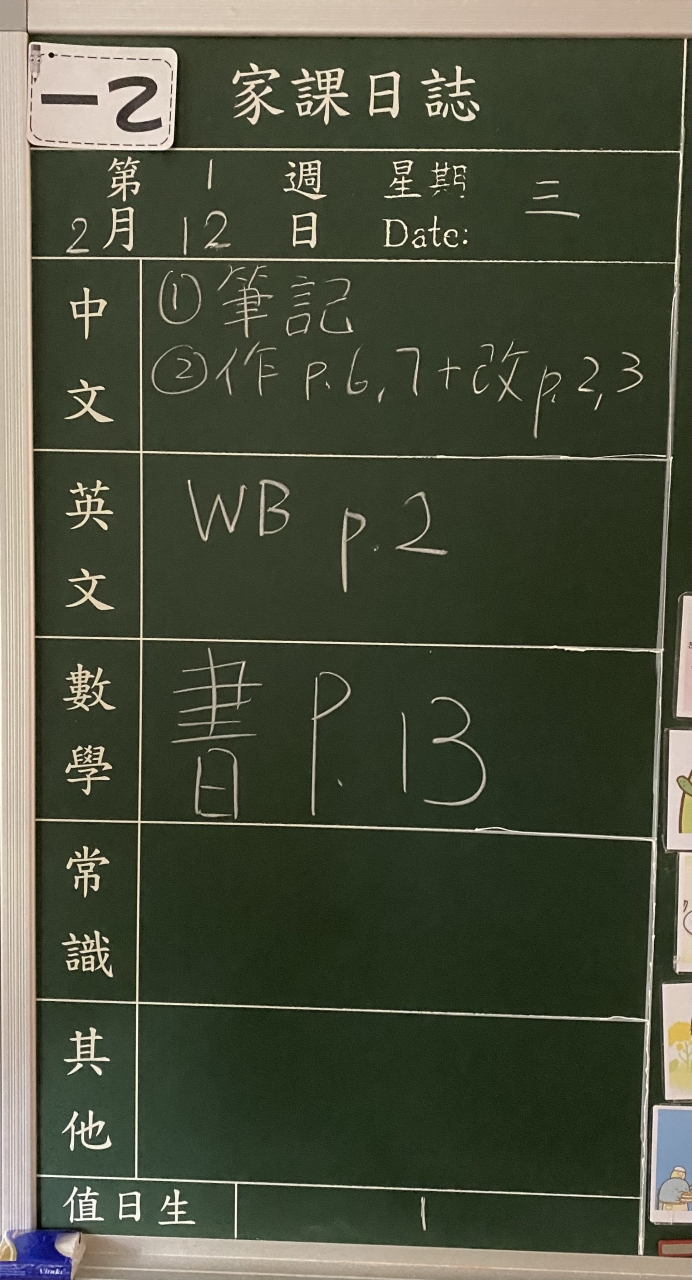 一乙
家課日誌
第 1 週 星期 三
2月 12 日 Date:
中文
①筆記
②作 p.6,7+改p.2,3
英文
WB p.2
數學
書 P.13
常識
其他
值日生 1